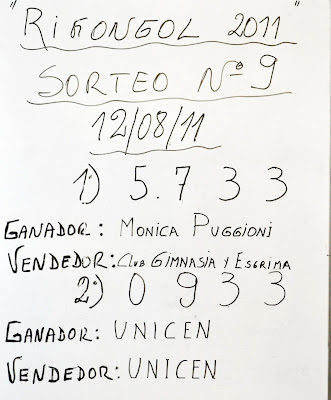 "RIFONGOL 2011"
SORTEO Nº 9
12/08/11
1º) 5.733
GANADOR: MONICA PUGGIONI
VENDEDOR: CLUB GIMNASIA Y ESGRIMA
2º) 0933
GANADOR: UNICEN
VENDEDOR: UNICEN